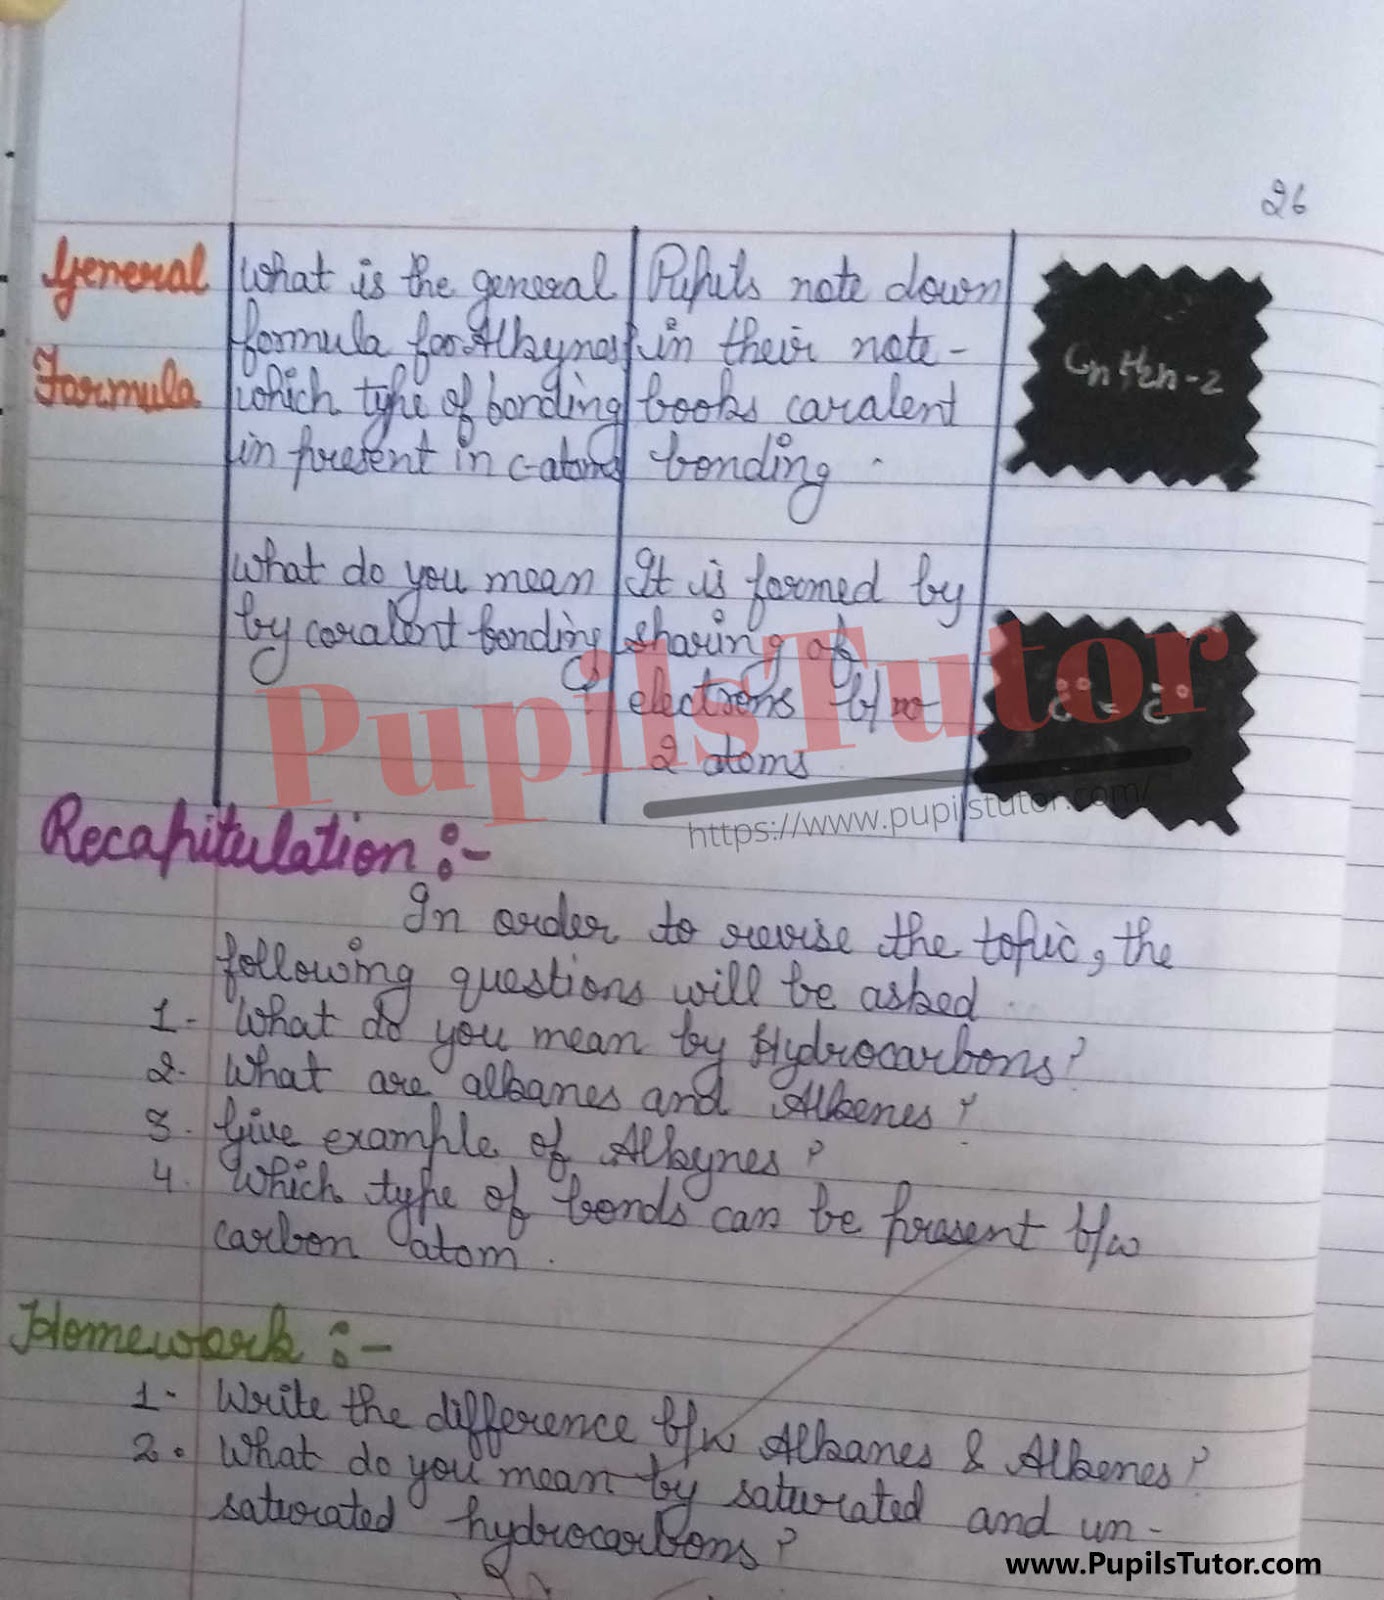 26
General
Formula
What is the general
formula for Alkynes
which type of bonding
in present in c-atoms
Pupils note down
in their note-
books covalent
bonding.
CnH2n-2
What do you mean
by covalent bonding
?
It is formed by
sharing of
electrons b/w
2 atoms
PupilsTutor
https://www.pupilstutor.com/
Recapitulation :-
In order to revise the topic, the
following questions will be asked.
1. What do you mean by Hydrocarbons?
2. What are alkanes and Alkenes?
3. Give example of Alkynes?
4. Which type of bonds can be present b/w
carbon atom.
Homework :-
1- Write the difference b/w Alkanes & Alkenes?
2. What do you mean by saturated and un-
saturated hydrocarbons?
www.PupilsTutor.com